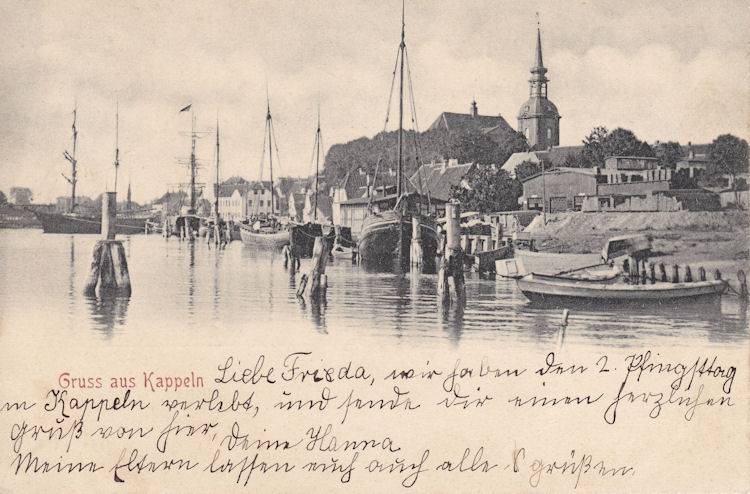 Gruss aus Kappeln Liebe Frieda, wir haben den 2. Pfingsttag
in Kappeln verlebt, und sende dir einen herzlichen
Gruß von hier, Deine Hanna
Meine Eltern lassen euch auch alle grüßen.